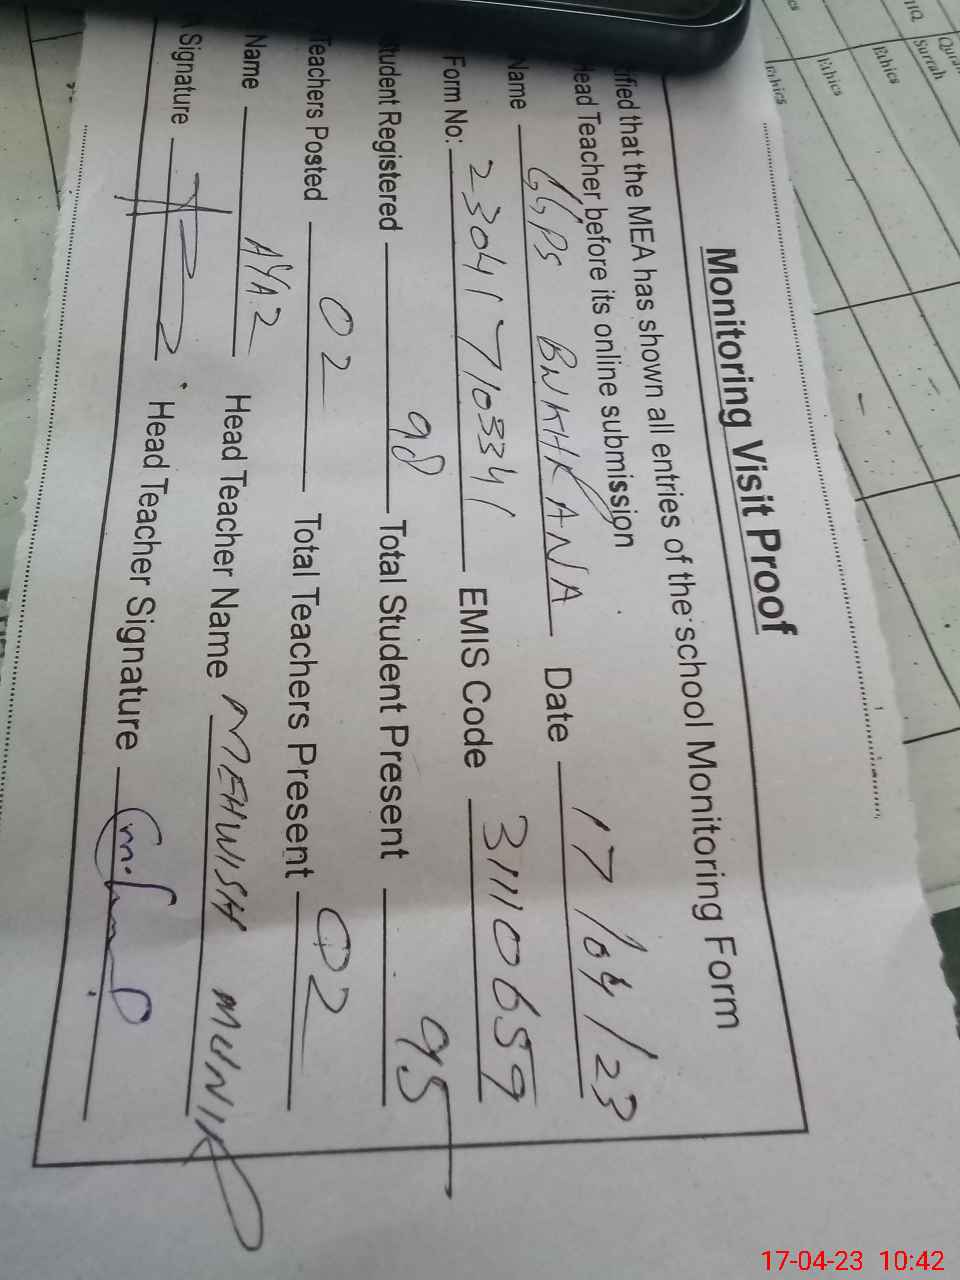 Monitoring Visit Proof
ified that the MEA has shown all entries of the school Monitoring Form
ead Teacher before its online submission
Name GGPS BNKHKANA Date 17/04/23
Form No: 230417103341 EMIS Code 31110659
tudent Registered 98 Total Student Present 95
Teachers Posted 02 Total Teachers Present 02
Name AYAZ Head Teacher Name MEHWISH MUNIR
A Signature Head Teacher Signature
HQ
Surrah
Ethics
Ethics
Ethics
17-04-23 10:42